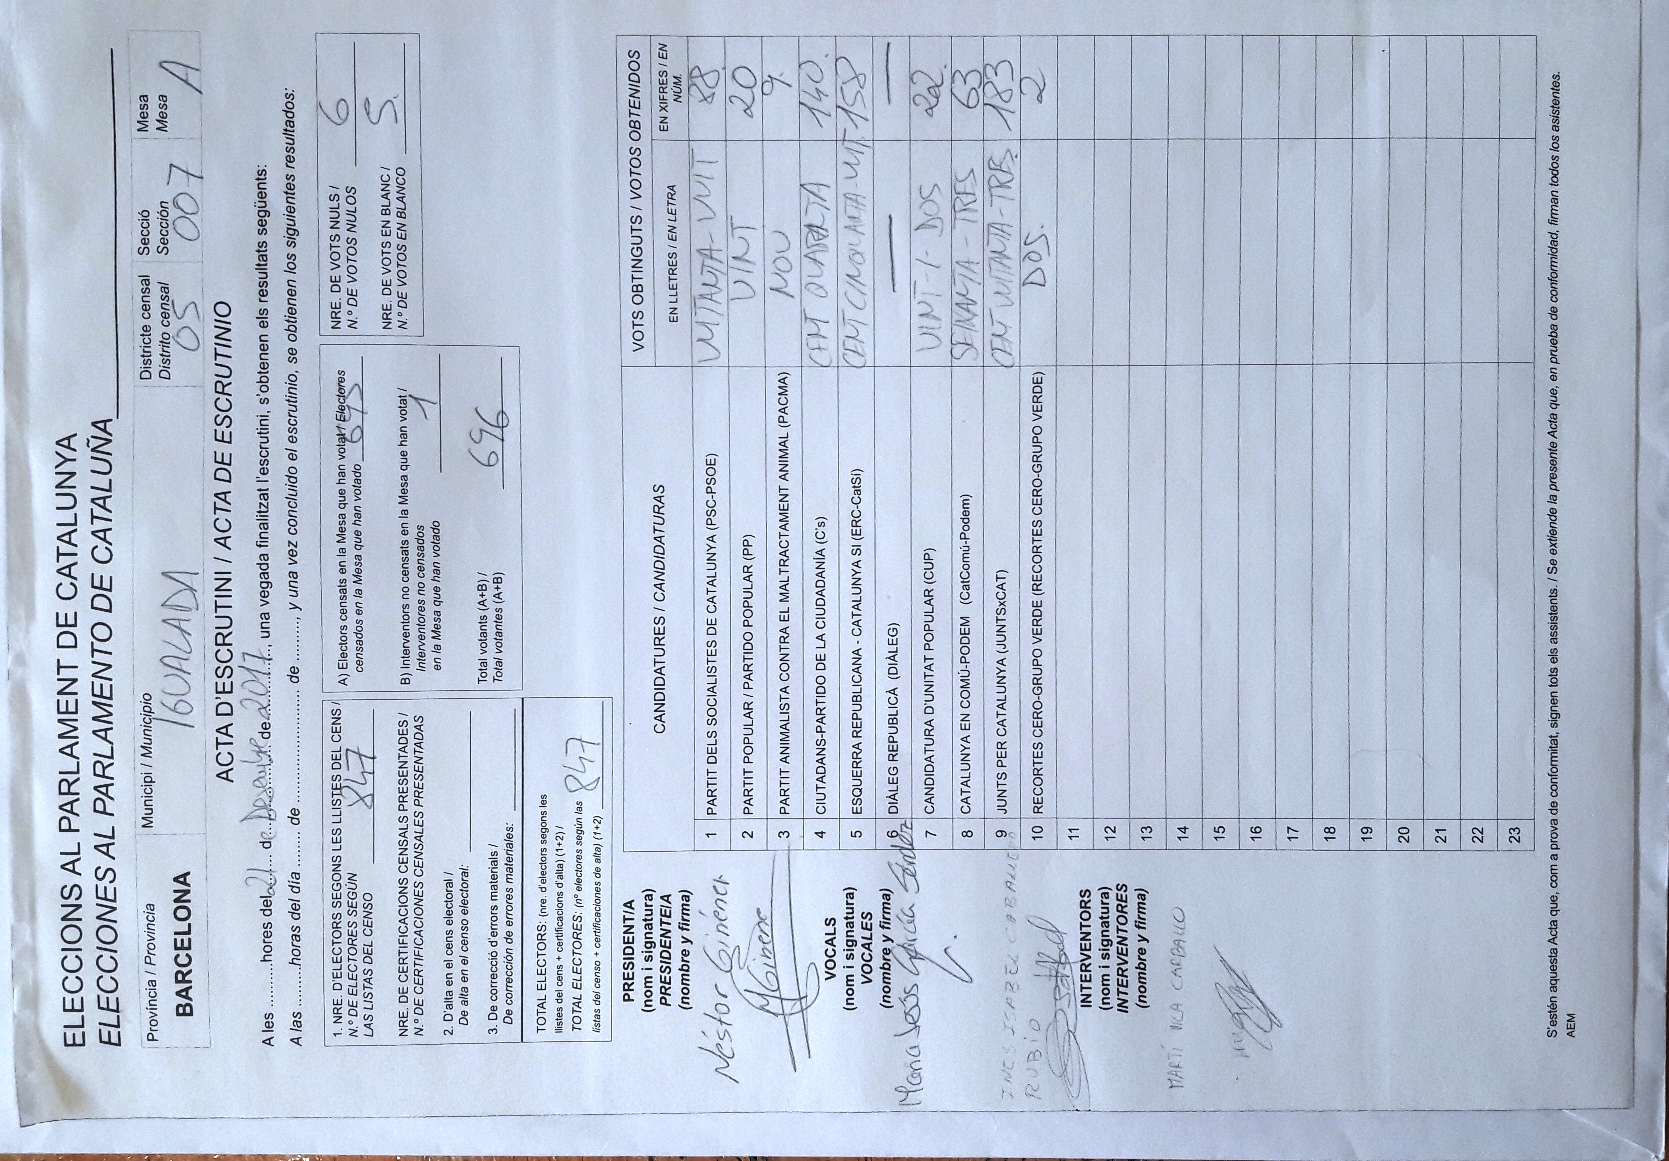 ELECCIONS AL PARLAMENT DE CATALUNYA
ELECCIONES AL PARLAMENTO DE CATALUÑA
Província / Provincia
BARCELONA
Municipi / Municipio
IGUALADA
Districte censal
Distrito censal
05
Secció
Sección
007
Mesa
Mesa
A
ACTA D'ESCRUTINI / ACTA DE ESCRUTINIO
A les ..........hores del 21 de Desembre de 2017, una vegada finalitzat l'escrutini, s'obtenen els resultats següents:
A las .........horas del día ........ de ........................ de ........., y una vez concluido el escrutinio, se obtienen los siguientes resultados:
1. NRE. D'ELECTORS SEGONS LES LLISTES DEL CENS /
N.º DE ELECTORES SEGÚN
LAS LISTAS DEL CENSO 847
NRE. DE CERTIFICACIONS CENSALS PRESENTADES /
N.º DE CERTIFICACIONES CENSALES PRESENTADAS
2. D'alta en el cens electoral /
De alta en el censo electoral:
3. De correcció d'errors materials /
De corrección de errores materiales:
TOTAL ELECTORS: (nre. d'electors segons les
llistes del cens + certificacions d'alta) (1+2) /
TOTAL ELECTORES: (nº electores según las
listas del censo + certificaciones de alta) (1+2) 847
A) Electors censats en la Mesa que han votat / Electores
censados en la Mesa que han votado 695
B) Interventors no censats en la Mesa que han votat /
Interventores no censados
en la Mesa que han votado 1
Total votants (A+B) /
Total votantes (A+B) 696
NRE. DE VOTS NULS /
N.º DE VOTOS NULOS 6
NRE. DE VOTS EN BLANC /
N.º DE VOTOS EN BLANCO 5.
PRESIDENT/A
(nom i signatura)
PRESIDENTE/A
(nombre y firma)
Néstor Giménez
VOCALS
(nom i signatura)
VOCALES
(nombre y firma)
Maria Jesús García Sández
INES ISABEL CABALLERO
RUBIO
INTERVENTORS
(nom i signatura)
INTERVENTORES
(nombre y firma)
MARTÍ VILA CARBALLO
CANDIDATURES / CANDIDATURAS
VOTS OBTINGUTS / VOTOS OBTENIDOS
EN LLETRES / EN LETRA
EN XIFRES / EN NÚM.
1 PARTIT DELS SOCIALISTES DE CATALUNYA (PSC-PSOE) VUITANTA-VUIT 88
2 PARTIT POPULAR / PARTIDO POPULAR (PP) VINT 20
3 PARTIT ANIMALISTA CONTRA EL MALTRACTAMENT ANIMAL (PACMA) NOU 9.
4 CIUTADANS-PARTIDO DE LA CIUDADANÍA (C's) CENT QUARANTA 140.
5 ESQUERRA REPUBLICANA - CATALUNYA SI (ERC-CatSí) CENT CINQUANTA-VUIT 158
6 DIÀLEG REPUBLICÀ (DIÀLEG) — —
7 CANDIDATURA D'UNITAT POPULAR (CUP) VINT-I-DOS 22.
8 CATALUNYA EN COMÚ-PODEM (CatComú-Podem) SEIXANTA-TRES 63
9 JUNTS PER CATALUNYA (JUNTSxCAT) CENT VUITANTA-TRES 183
10 RECORTES CERO-GRUPO VERDE (RECORTES CERO-GRUPO VERDE) DOS. 2
11
12
13
14
15
16
17
18
19
20
21
22
23
S'estén aquesta Acta que, com a prova de conformitat, signen tots els assistents. / Se extiende la presente Acta que, en prueba de conformidad, firman todos los asistentes.
AEM